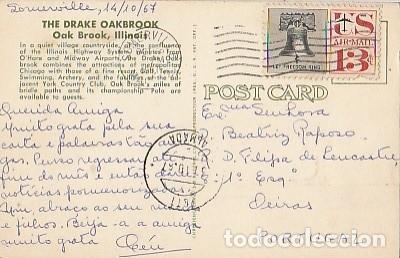 Somerville, 14/10/67
THE DRAKE OAKBROOK
Oak Brook, Illinois
In a quiet village countryside, at the confluence
of the Illinois Highway System, minutes from
O'Hare and Midway Airports, the Drake, Oak
Brook combines the attractions of metropolitan
Chicago with those of a fine resort. Golf, Tennis,
Swimming, Archery, and the folklore of the
York Country Club, Oak Brook's miles of
bridle paths and its championship Polo are
available to guests.
LET FREEDOM RING
US
AIR MAIL
13¢
POST CARD
Querida Amiga
Muito grata pela sua
carta e palavras
gas. Penso regressar até
fim do mês e então
notícias pormenorizadas
Um abraço ao seu
e filhos. Beija-a a amiga
muito grata
Céu
Exma Senhora
D. Beatriz Raposo
R. D. Filipa de Lencastre,
1º Esq.
Oeiras
PORTUGAL
todocoleccion